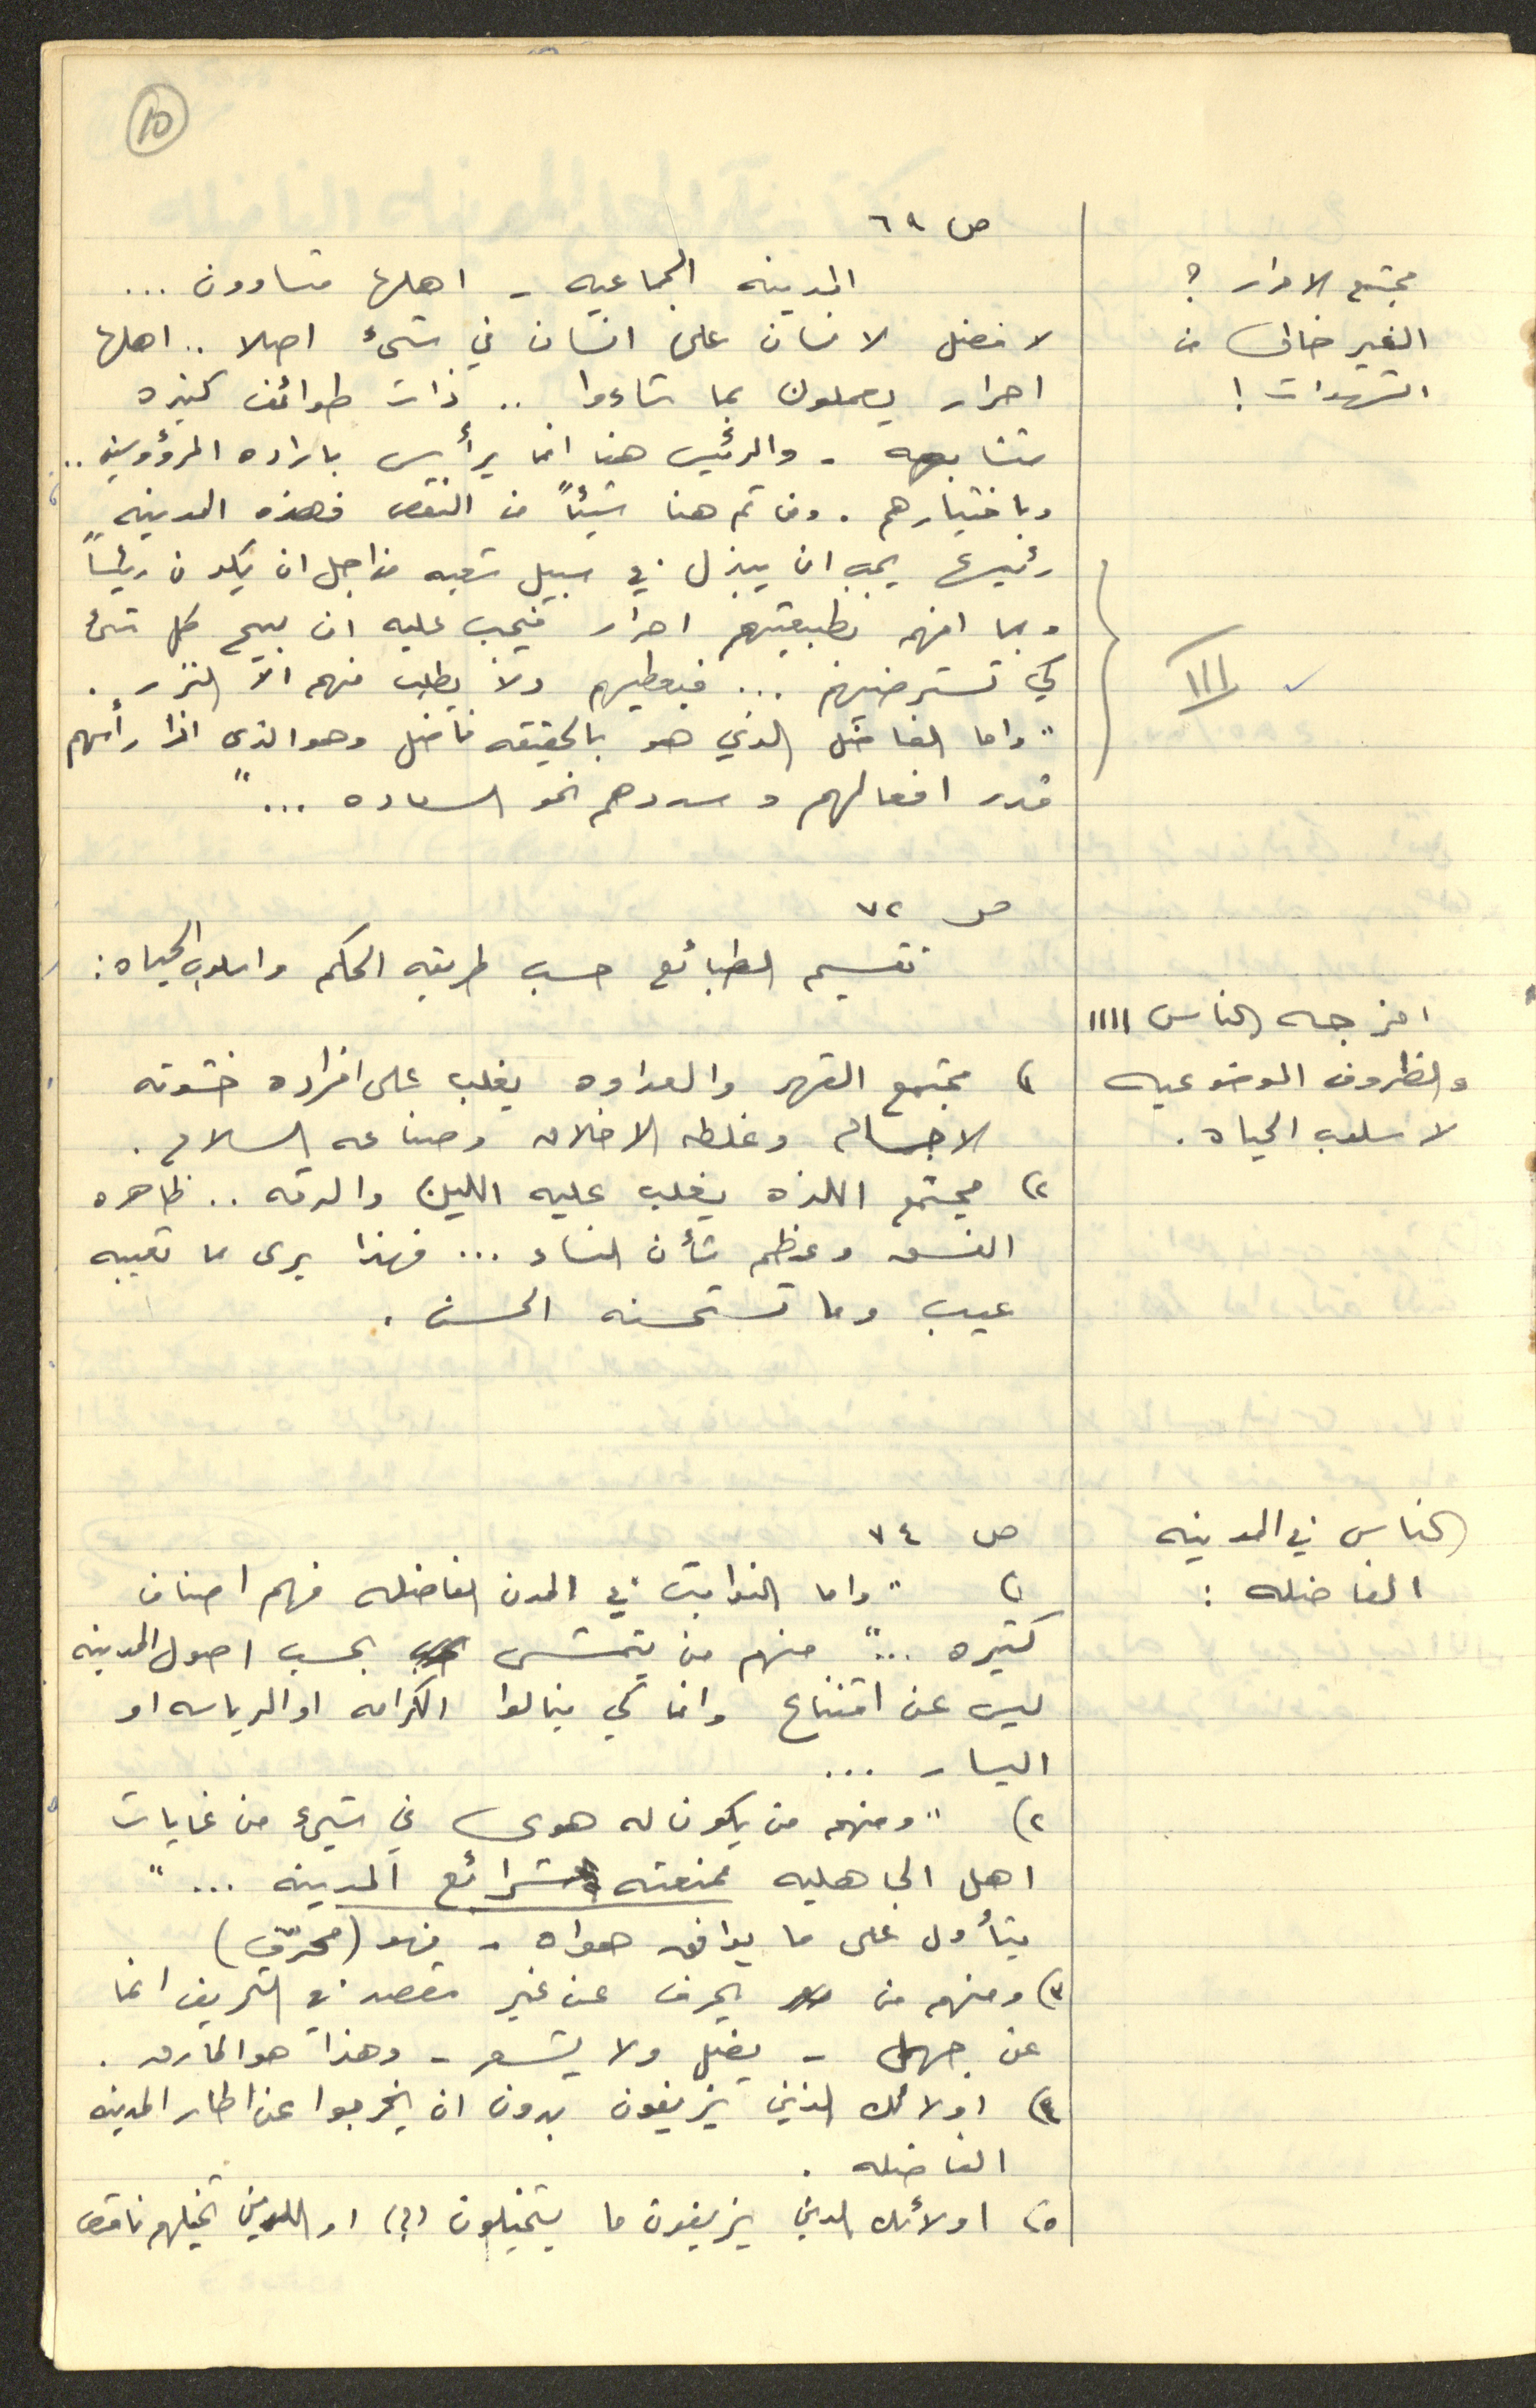 10
ص ٦٩
المدينه الجماعيه - اهلها متساوون ...
لا فضل لانسان على انسان في شئ اصلا .. اهلها
احرار يعملون بما شاءوا .. ذات طوائف كثيره
متشابهه - والرئيس هنا انما يرأس باراده المرؤوسين ..
وباختيارهم . ومن ثم هنا شيئاً من النقص فهذه المدينه
رئيسها يجب ان يبذل في سبيل شعبه من اجل ان يكون رئيساً
وبما انهم بطبيعتهم احرار فيجب عليه ان يبيح كل شئ
كي تسترضيهم ... فيعطيهم ولا يطلب منهم الا النزر .
"واما الفاضل الذي هو بالحقيقه فاضل وهو الذي اذا رأسهم
قدر افعالهم وسددهم نحو السعاده ..."
مجتمع الاحرار ؟
الغير خالي من
الشهوات !
!!!
ص ٧٢
تقسيم الطبائع حسب طريقه الحكم واسلوب الحياه :
١) مجتمع القهر والعداوه يغلب على افراده خشونه
الاجسام وغلظه الاخلاق وصناعه السلاح .
٢) مجتمع اللذه يغلب عليه اللين والرقه .. ظاهره
الفسق وعظم شأن النساء ... فهذا يرى ما تعيبه
عيب وما تستحسنه الحسن .
امزجه الناس !!!!
والظروف الموضوعيه
لاسلوب الحياه .
ص ٧٤
١) "واما النوابت في المدن الفاضله فهم اصناف
كثيره ..." منهم من يتمشى بحسب اصول المدينه
ليس عن اقتناع وانما كي ينالوا الكرامه او الرياسه او
اليسار ...
٢) "ومنهم من يكون له هوى في شيء من غايات
اهل الجاهليه تمنعته شرائع المدينه ..."
يتأول على ما يوافق هواه - فهو (محرّف)
٣) ومنهم من يحرف عن غير مقصد في التحريف انما
عن جهل - يضل ولا يشعر - وهذا هو المارق .
٤) اولائك الذين يزيفون بدون ان يخرجوا عن اطار المدينه
الفاضله .
٥) اولائك الذين يزيفون ما يتخيلون (؟) او اللذين تخيلهم ناقص
الناس في المدينه
الفاضله :